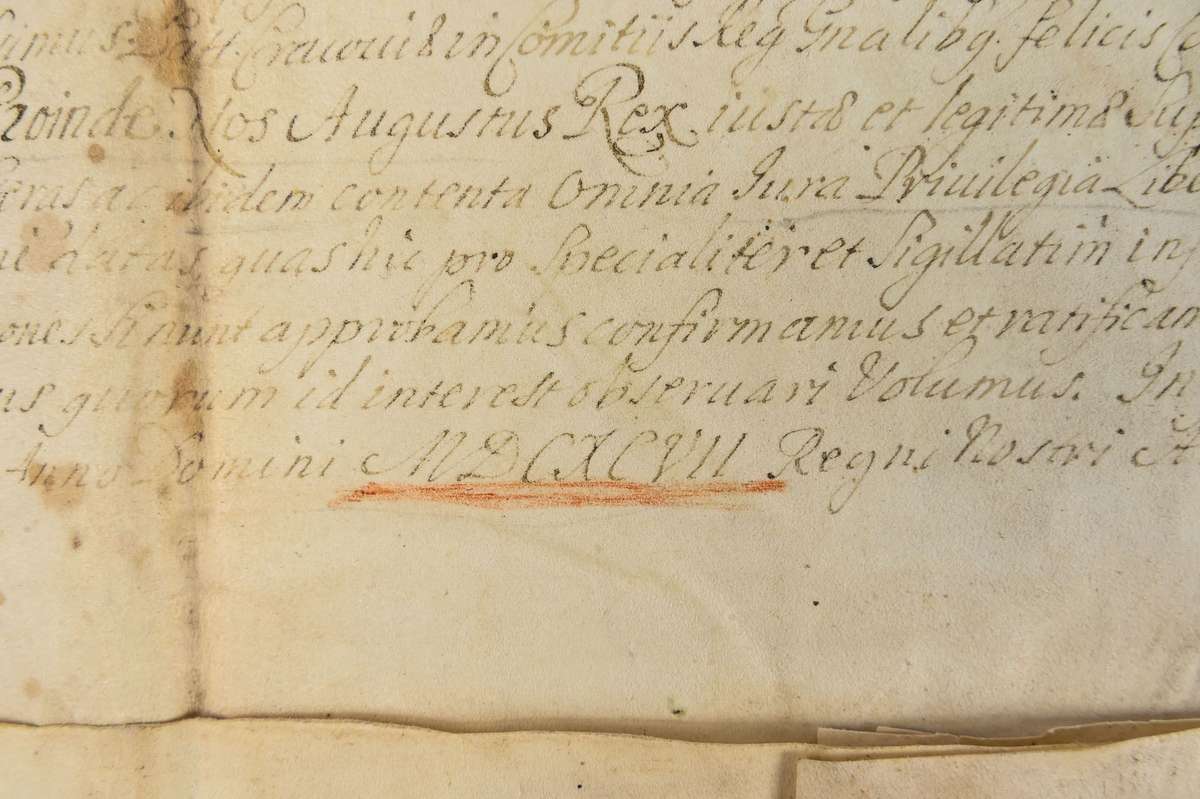 in Comitiis Reg Gnalibq. felicis
Proinde Nos Augustus Rex iustæ et legitimæ
ac ibidem contenta Omnia Jura Privilegia Libe
quas hic pro Specialiter et Sigillatim in
approbamus confirmamus et ratificam
us quorum id interest observari Volumus. In
Anno Domini MDCXCVII Regni Nostri A